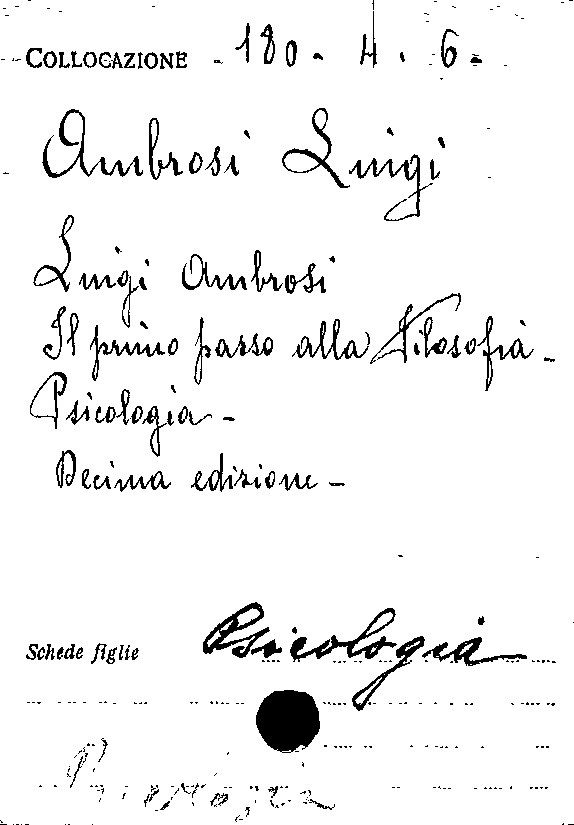 COLLOCAZIONE 180. 4. 6.
Ambrosi Luigi
Luigi Ambrosi
Il primo passo alla Filosofia -
Psicologia -
Decima edizione -
Schede figlie Psicologia
Psicologia